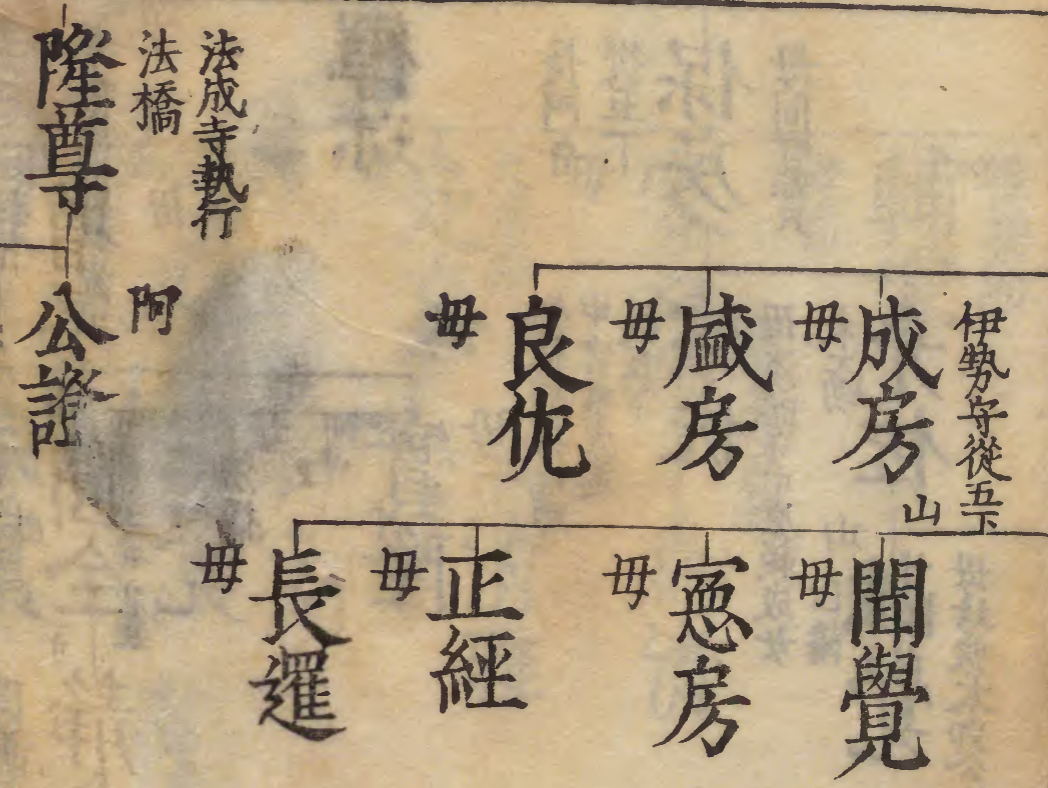 伊勢守從五下
成房
母
盛房
母
良佐
母
山
聞覺
母
憲房
母
正經
母
長暹
母
法成寺執行
法橋
隆尊
阿
公證